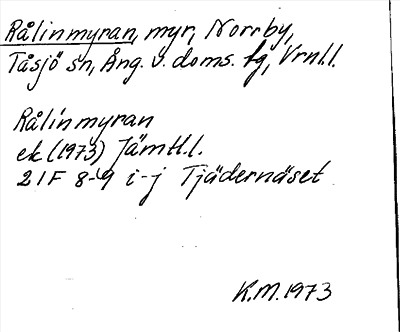 Rålinmyran, myr, Norrby,
Tåsjö sn, Ång. v. doms. tg, Vrnl.l.
Rålinmyran
ek (1973) Jämtl.l.
21F 8-9 i-j Tjädernäset
K.M. 1973